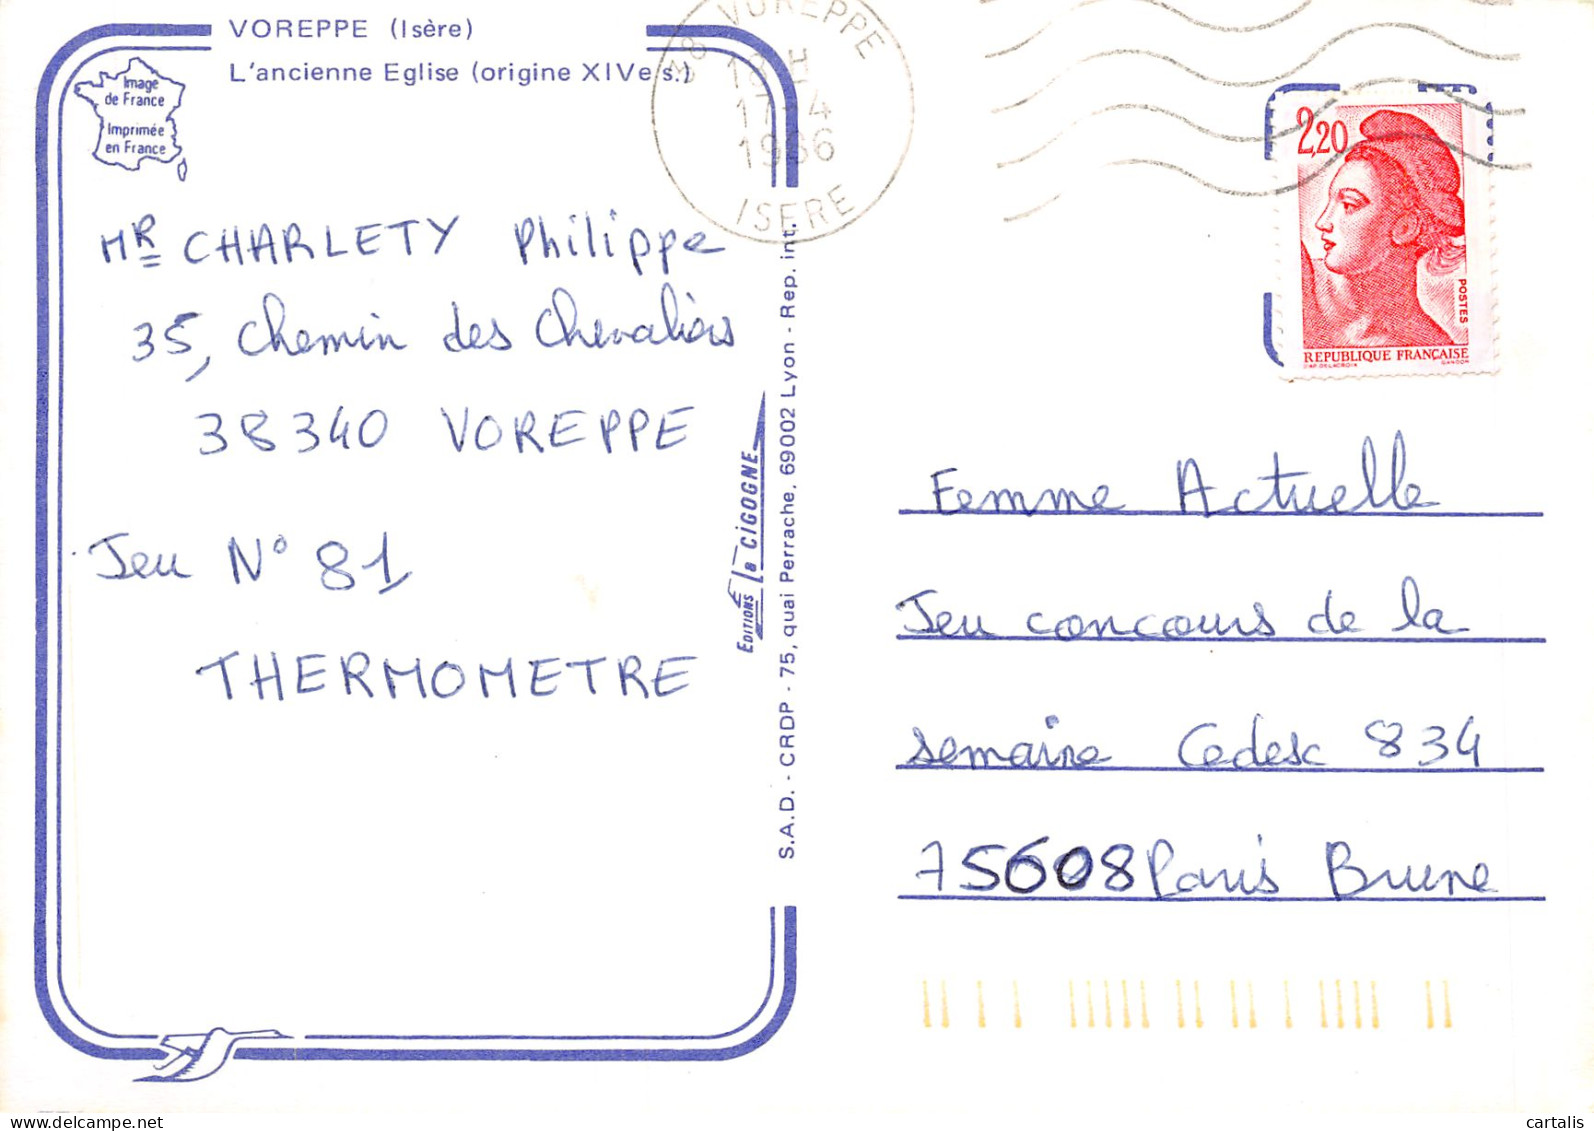 VOREPPE (Isère)
L'ancienne Eglise (origine XIVe s.)
Image
de France
Imprimée
en France
38 VOREPPE
18 H
17-4
1986
ISERE
2,20
POSTES
REPUBLIQUE FRANÇAISE
D'AP. DELACROIX GANDON
MR CHARLETY Philippe
35, Chemin des Chevaliers
38340 VOREPPE
Jeu N° 81
THERMOMETRE
EDITIONS la CIGOGNE
S.A.D. - CRDP - 75, quai Perrache, 69002 Lyon - Rep. int.
Femme Actuelle
Jeu concours de la
semaine Cedesc 834
75608 Paris Brune
cartalis.delcampe.net